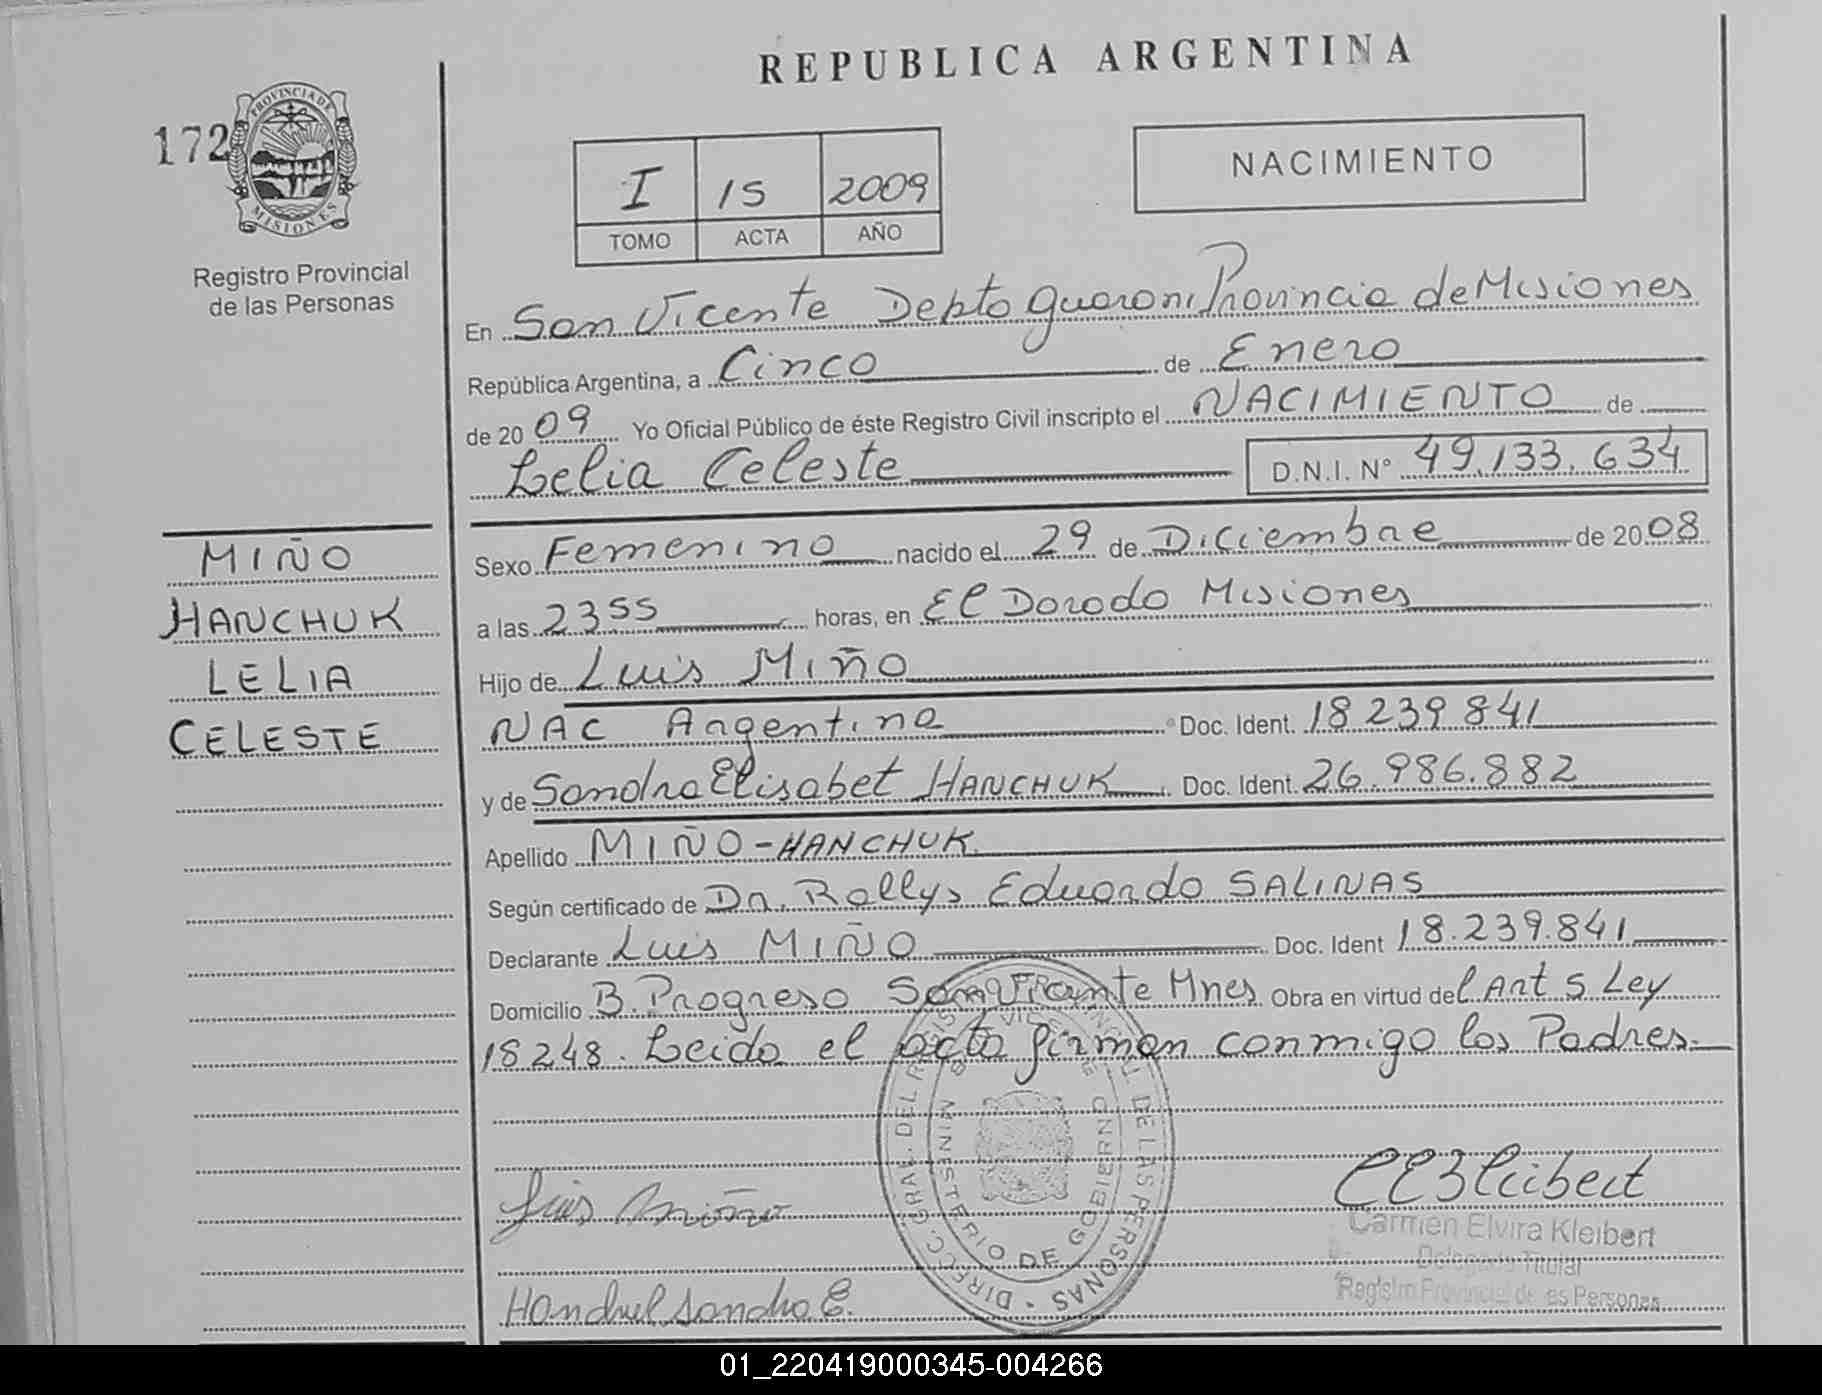 REPUBLICA ARGENTINA
172
PROVINCIA DE MISIONES
Registro Provincial
de las Personas
I 15 2009
TOMO ACTA AÑO
NACIMIENTO
En San Vicente Depto Guarani Provincia de Misiones
República Argentina, a Cinco de Enero
de 2009 Yo Oficial Público de éste Registro Civil inscripto el NACIMIENTO de
Lelia Celeste D.N.I. N° 49.133.634
MIÑO
HANCHUK
LELIA
CELESTE
Sexo Femenino nacido el 29 de Diciembre de 2008
a las 2355 horas, en El Dorado Misiones
Hijo de Luis Miño
NAC Argentina Doc. Ident. 18 239 841
y de Sandra Elisabet HANCHUK Doc. Ident. 26.986.882
Apellido MIÑO-HANCHUK
Según certificado de Dr. Rollys Eduardo SALINAS
Declarante Luis MIÑO Doc. Ident 18.239.841
Domicilio B. Progreso San Vicente Mnes Obra en virtud del Art 5 Ley
18248. Leida el acta firman conmigo los Padres.
DIRECC. GRAL. DEL REGISTRO PROVINCIAL DE LAS PERSONAS
MINISTERIO DE GOBIERNO
Luis Miño
Carmen Elvira Kleibert
Delegada Titular
Registro Provincial de las Personas
Sandra E.
01_220419000345-004266